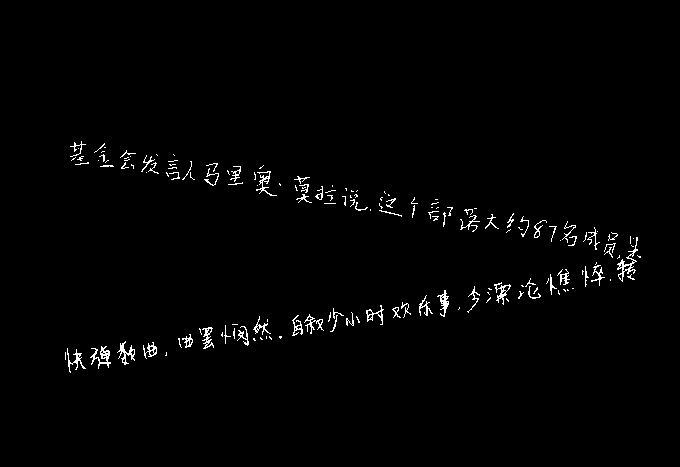 基金会发言人马里奥·莫拉说,这个部落大约87名成员,吴
快弹数曲,曲罢悯然。自叙少小时欢乐事,今漂沦憔悴,转